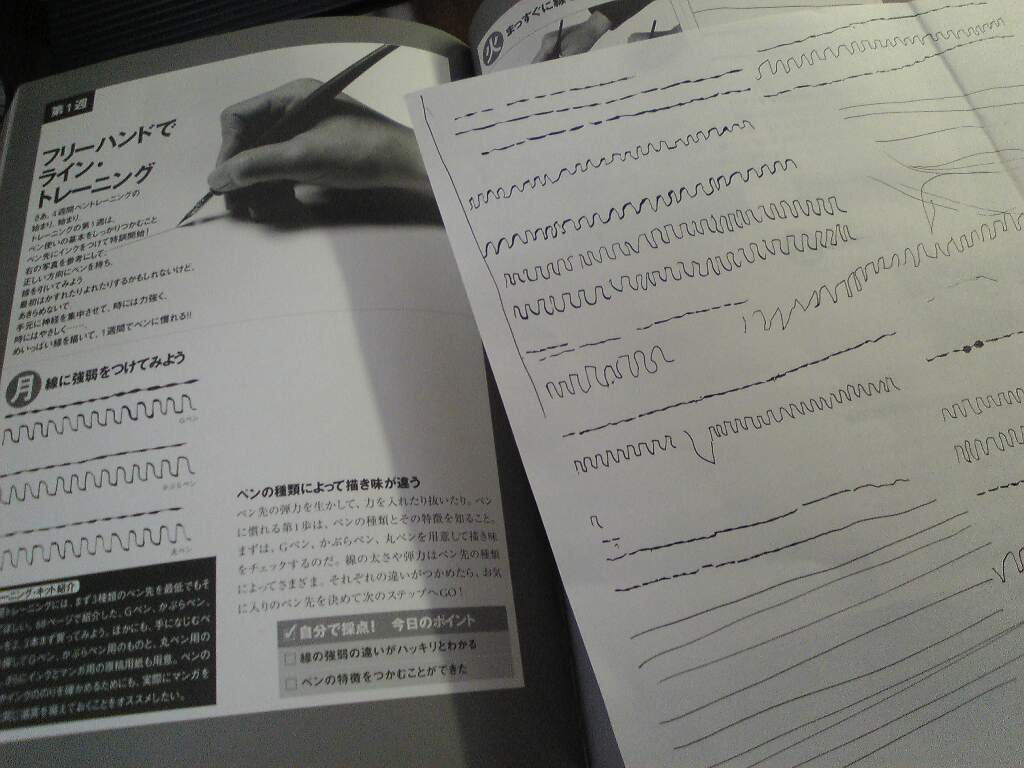 第1週
フリーハンドで
ライン・
トレーニング
さあ、4週間ペントレーニングの
始まり、始まり。
トレーニングの第1週は、
ペン使いの基本をしっかりつかむこと
ペン先にインクをつけて特訓開始!
右の写真を参考にして、
正しい方向にペンを持ち、
線を引いてみよう
最初はかすれたりよれたりするかもしれないけど、
あきらめないで
手元に神経を集中させて、時には力強く、
時にはやさしく……。
めいっぱい線を描いて、1週間でペンに慣れる!!
月 線に強弱をつけてみよう
Gペン
かぶらペン
丸ペン
ペンの種類によって描き味が違う
ペン先の弾力を生かして、力を入れたり抜いたり。ペン
に慣れる第1歩は、ペンの種類とその特徴を知ること。
まずは、Gペン、かぶらペン、丸ペンを用意して描き味
をチェックするのだ。線の太さや弾力はペン先の種類
によってさまざま。それぞれの違いがつかめたら、お気
に入りのペン先を決めて次のステップへGO!
ーニング・キット紹介
トレーニングには、まず3種類のペン先を最低でもそ
ページで紹介した、Gペン、かぶらペン、
本まず買ってみよう。ほかにも、手になじむペ
Gペン、かぶらペン用のものと、丸ペン用の
にインクとマンガ用の原稿用紙も用意。ペンの
を確かめるためにも、実際にマンガを
えておくことをオススメしたい。
✓自分で採点! 今日のポイント
□ 線の強弱の違いがハッキリとわかる
□ ペンの特徴をつかむことができた
火 まっすぐに線